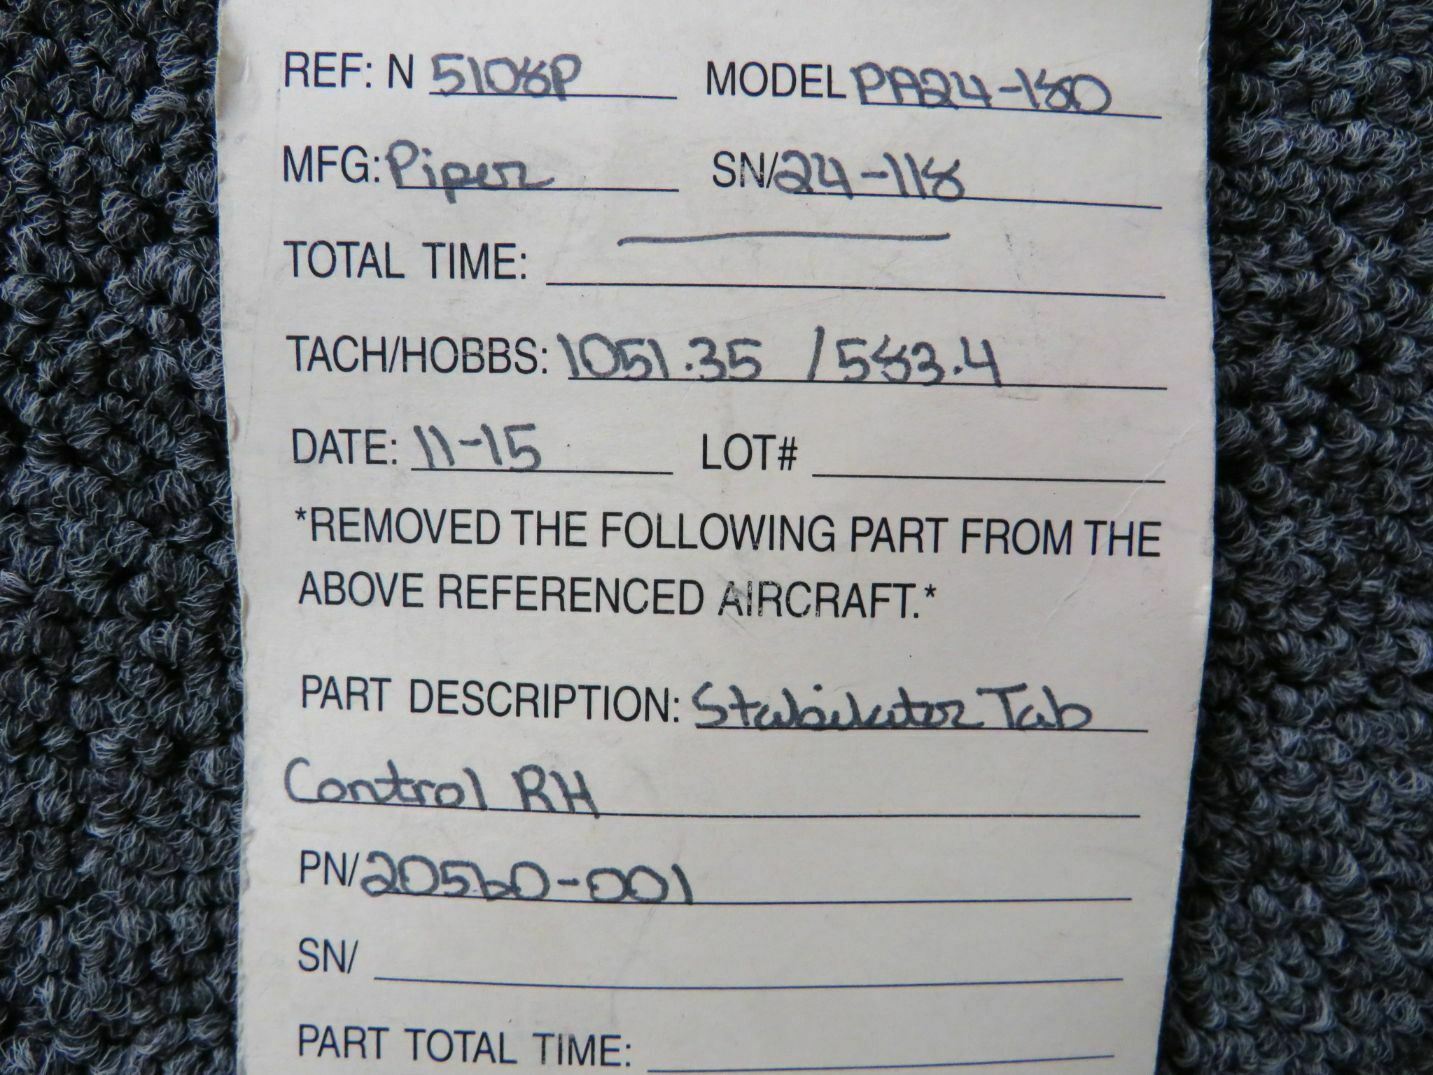 REF: N 5108P MODEL PA24-180
MFG: Piper SN/24-118
TOTAL TIME:
TACH/HOBBS: 1051.35 / 583.4
DATE: 11-15 LOT#
*REMOVED THE FOLLOWING PART FROM THE
ABOVE REFERENCED AIRCRAFT.*
PART DESCRIPTION: Stabilator Tab
Control RH
PN/20560-001
SN/
PART TOTAL TIME: